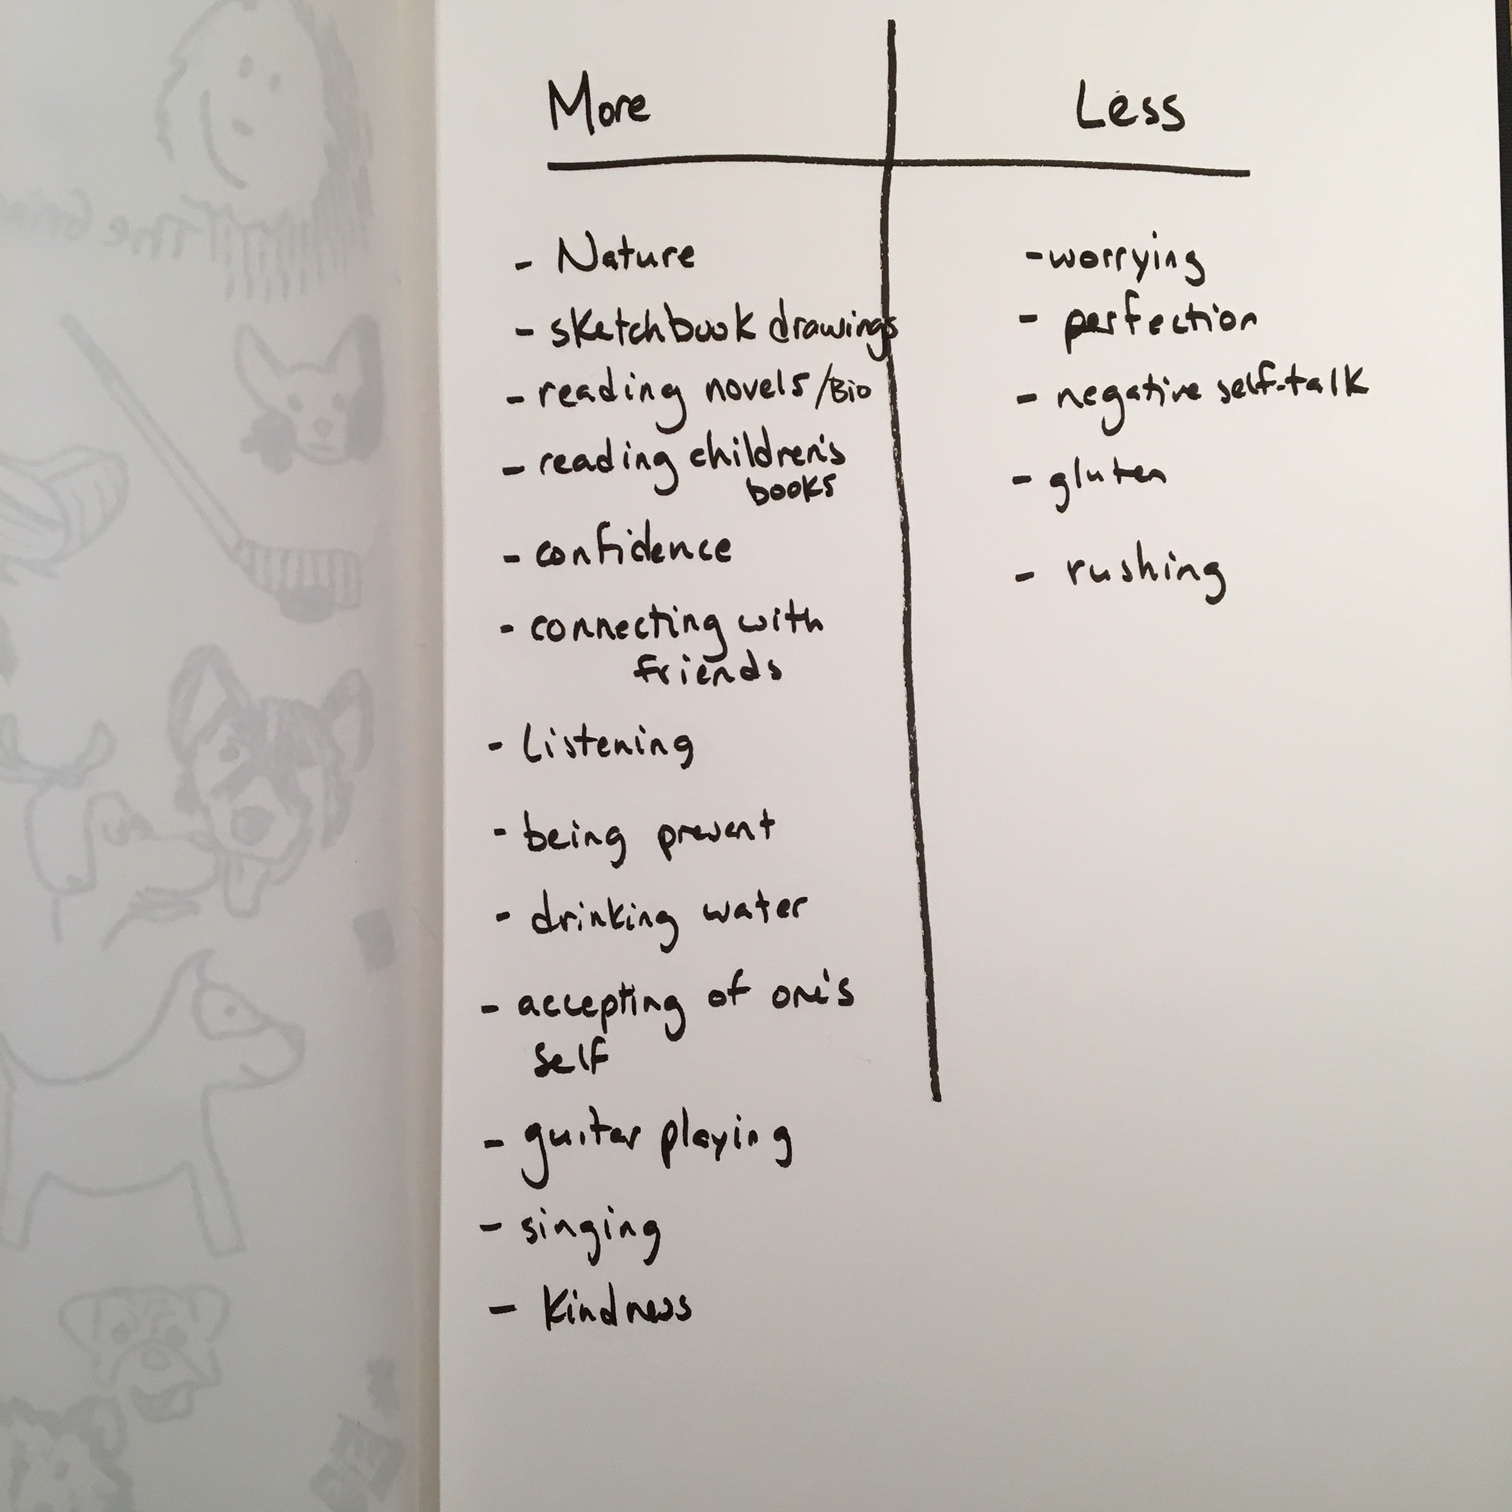 More
Less
- Nature
- sketchbook drawings
- reading novels/Bio
- reading children's
books
- confidence
- connecting with
friends
- Listening
- being present
- drinking water
- accepting of one's
self
- guitar playing
- singing
- Kindness
- worrying
- perfection
- negative self-talk
- gluten
- rushing